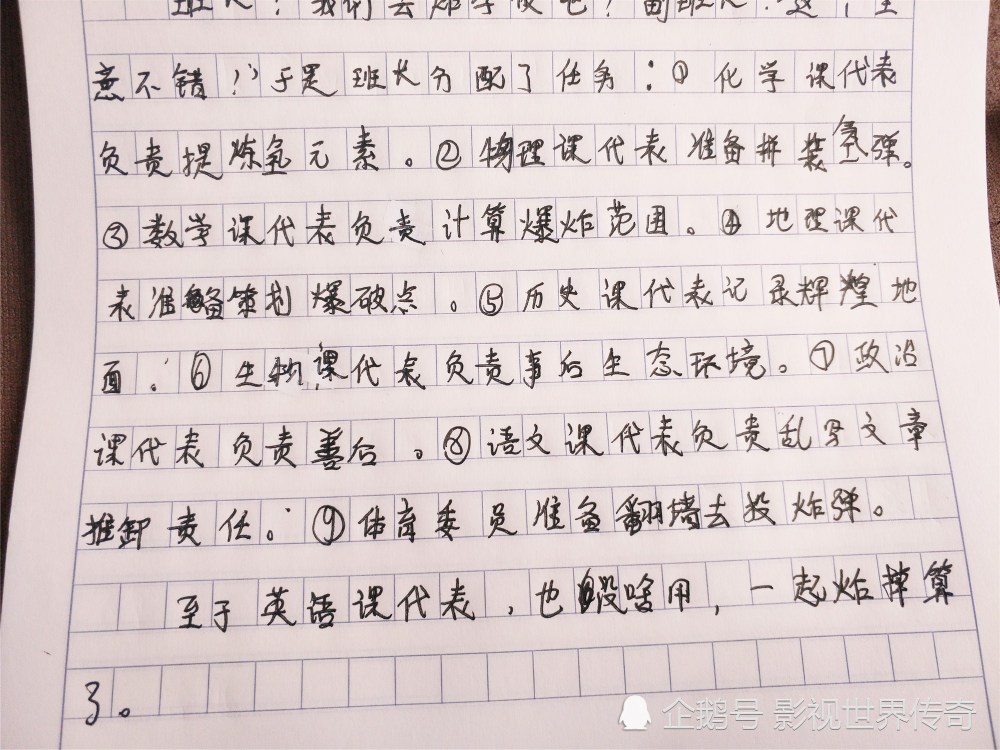 班长：我们去炸学校吧！副班长：这个主
意不错！”于是班长分配了任务：①化学课代表
负责提炼氢元素。②物理课代表准备拼装氢弹。
③数学课代表负责计算爆炸范围。④地理课代
表准备策划爆破点。⑤历史课代表记录辉煌地
面。⑥生物课代表负责事后生态环境。⑦政治
课代表负责善后。⑧语文课代表负责乱写文章
推卸责任。⑨体育委员准备翻墙去投炸弹。
至于英语课代表，也没啥用，一起炸掉算
了。
企鹅号 影视世界传奇